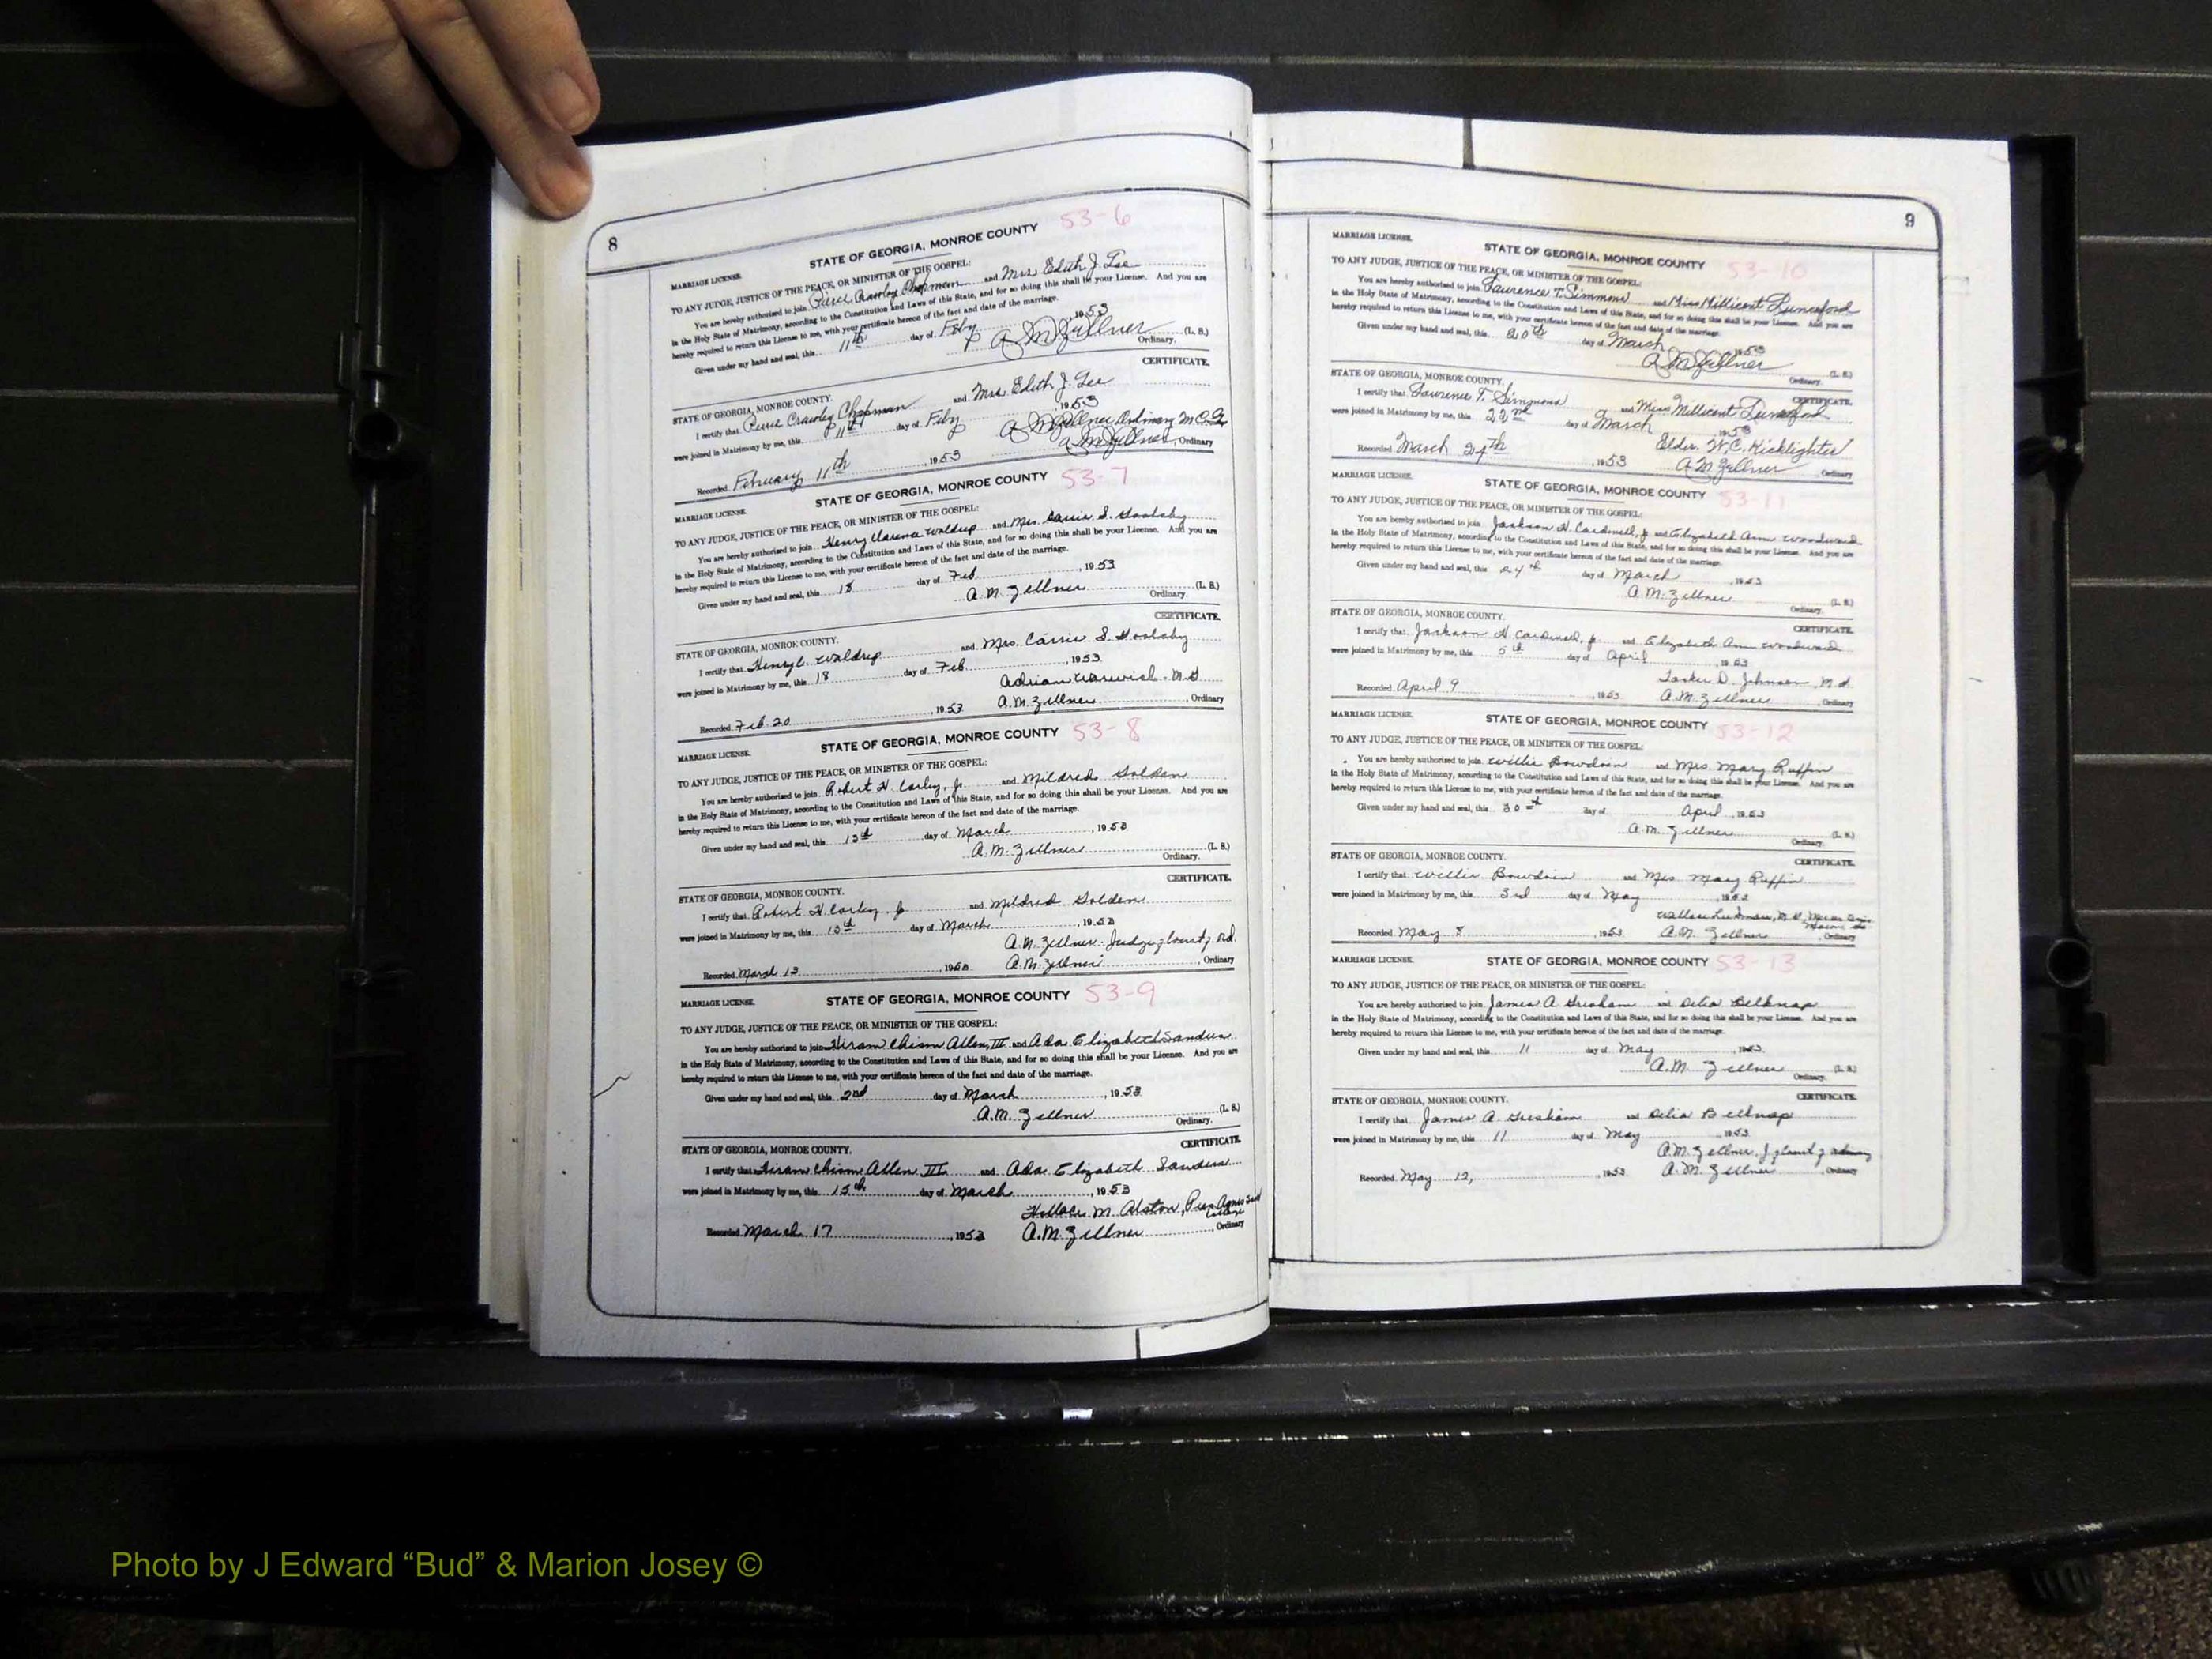 8
53-6
STATE OF GEORGIA, MONROE COUNTY
MARRIAGE LICENSE.
TO ANY JUDGE, JUSTICE OF THE PEACE, OR MINISTER OF THE GOSPEL:
You are hereby authorized to join Pierce Crawley Chapman and Mrs Edith J. Lee
in the Holy State of Matrimony, according to the Constitution and Laws of this State, and for so doing this shall be your License. And you are
hereby required to return this License to me, with your certificate hereon of the fact and date of the marriage.
Given under my hand and seal, this 11th day of Feby, 1953
A M Zellner (L. S.)
Ordinary.
CERTIFICATE.
STATE OF GEORGIA, MONROE COUNTY.
I certify that Pierce Crawley Chapman and Mrs Edith J. Lee
were joined in Matrimony by me, this 11th day of Feby, 1953
A M Zellner Ordinary M.C. Ga
Recorded February 11th, 1953 A M Zellner, Ordinary
MARRIAGE LICENSE.
STATE OF GEORGIA, MONROE COUNTY 53-7
TO ANY JUDGE, JUSTICE OF THE PEACE, OR MINISTER OF THE GOSPEL:
You are hereby authorized to join Henry Clarence Waldrep and Mrs. Carrie S. Goolsby
in the Holy State of Matrimony, according to the Constitution and Laws of this State, and for so doing this shall be your License. And you are
hereby required to return this License to me, with your certificate hereon of the fact and date of the marriage.
Given under my hand and seal, this 18 day of Feb, 1953
A. M. Zellner (L. S.)
Ordinary.
CERTIFICATE.
STATE OF GEORGIA, MONROE COUNTY.
I certify that Henry C. Waldrep and Mrs. Carrie S. Goolsby
were joined in Matrimony by me, this 18 day of Feb, 1953
Adrian Warwick. M G
Recorded Feb. 20, 1953 A. M. Zellner, Ordinary
MARRIAGE LICENSE.
STATE OF GEORGIA, MONROE COUNTY 53-8
TO ANY JUDGE, JUSTICE OF THE PEACE, OR MINISTER OF THE GOSPEL:
You are hereby authorized to join Robert H. Corley, Jr. and Mildred Golden
in the Holy State of Matrimony, according to the Constitution and Laws of this State, and for so doing this shall be your License. And you are
hereby required to return this License to me, with your certificate hereon of the fact and date of the marriage.
Given under my hand and seal, this 13th day of March, 1953
A. M. Zellner (L. S.)
Ordinary.
CERTIFICATE.
STATE OF GEORGIA, MONROE COUNTY.
I certify that Robert H. Corley, Jr and Mildred Golden
were joined in Matrimony by me, this 13th day of March, 1953
A. M. Zellner - Judge County
Recorded March 13, 1953 A. M. Zellner, Ordinary
MARRIAGE LICENSE.
STATE OF GEORGIA, MONROE COUNTY 53-9
TO ANY JUDGE, JUSTICE OF THE PEACE, OR MINISTER OF THE GOSPEL:
You are hereby authorized to join Hiram Chism Allen, III and Ada Elizabeth Sanders
in the Holy State of Matrimony, according to the Constitution and Laws of this State, and for so doing this shall be your License. And you are
hereby required to return this License to me, with your certificate hereon of the fact and date of the marriage.
Given under my hand and seal, this 2nd day of March, 1953
A. M. Zellner (L. S.)
Ordinary.
CERTIFICATE.
STATE OF GEORGIA, MONROE COUNTY.
I certify that Hiram Chism Allen III and Ada Elizabeth Sanders
were joined in Matrimony by me, this 15th day of March, 1953
Wallace M. Alston, Pres Agnes Scott College
Recorded March 17, 1953 A. M. Zellner, Ordinary
9
MARRIAGE LICENSE.
STATE OF GEORGIA, MONROE COUNTY 53-10
TO ANY JUDGE, JUSTICE OF THE PEACE, OR MINISTER OF THE GOSPEL:
You are hereby authorized to join Laurence T. Simmons and Miss Millicent Lunceford
in the Holy State of Matrimony, according to the Constitution and Laws of this State, and for so doing this shall be your License. And you are
hereby required to return this License to me, with your certificate hereon of the fact and date of the marriage.
Given under my hand and seal, this 20th day of March, 1953
A M Zellner (L. S.)
Ordinary.
CERTIFICATE.
STATE OF GEORGIA, MONROE COUNTY.
I certify that Laurence T. Simmons and Miss Millicent Lunceford
were joined in Matrimony by me, this 22nd day of March, 1953
Elder W. C. Kicklighter
Recorded March 24th, 1953 A M Zellner, Ordinary
MARRIAGE LICENSE.
STATE OF GEORGIA, MONROE COUNTY 53-11
TO ANY JUDGE, JUSTICE OF THE PEACE, OR MINISTER OF THE GOSPEL:
You are hereby authorized to join Jackson H. Cardwell, Jr and Elizabeth Ann Woodward
in the Holy State of Matrimony, according to the Constitution and Laws of this State, and for so doing this shall be your License. And you are
hereby required to return this License to me, with your certificate hereon of the fact and date of the marriage.
Given under my hand and seal, this 24th day of March, 1953
A. M. Zellner (L. S.)
Ordinary.
CERTIFICATE.
STATE OF GEORGIA, MONROE COUNTY.
I certify that Jackson H Cardwell, Jr. and Elizabeth Ann Woodward
were joined in Matrimony by me, this 5th day of April, 1953
D. Johnson, M G
Recorded April 9, 1953 A. M. Zellner, Ordinary
MARRIAGE LICENSE.
STATE OF GEORGIA, MONROE COUNTY 53-12
TO ANY JUDGE, JUSTICE OF THE PEACE, OR MINISTER OF THE GOSPEL:
You are hereby authorized to join Willie Bowdoin and Mrs. Mary Ruffin
in the Holy State of Matrimony, according to the Constitution and Laws of this State, and for so doing this shall be your License. And you are
hereby required to return this License to me, with your certificate hereon of the fact and date of the marriage.
Given under my hand and seal, this 30th day of April, 1953
A. M. Zellner (L. S.)
Ordinary.
CERTIFICATE.
STATE OF GEORGIA, MONROE COUNTY.
I certify that Willie Bowdoin and Mrs Mary Ruffin
were joined in Matrimony by me, this 3rd day of May, 1953
Recorded May 8, 1953 A. M. Zellner, Ordinary
MARRIAGE LICENSE.
STATE OF GEORGIA, MONROE COUNTY 53-13
TO ANY JUDGE, JUSTICE OF THE PEACE, OR MINISTER OF THE GOSPEL:
You are hereby authorized to join James A. Gresham and Delia Belknap
in the Holy State of Matrimony, according to the Constitution and Laws of this State, and for so doing this shall be your License. And you are
hereby required to return this License to me, with your certificate hereon of the fact and date of the marriage.
Given under my hand and seal, this 11 day of May, 1953
A. M. Zellner (L. S.)
Ordinary.
CERTIFICATE.
STATE OF GEORGIA, MONROE COUNTY.
I certify that James A. Gresham and Delia Belknap
were joined in Matrimony by me, this 11 day of May, 1953
A. M. Zellner, J
Recorded May 12, 1953 A. M. Zellner, Ordinary
Photo by J Edward “Bud” & Marion Josey ©